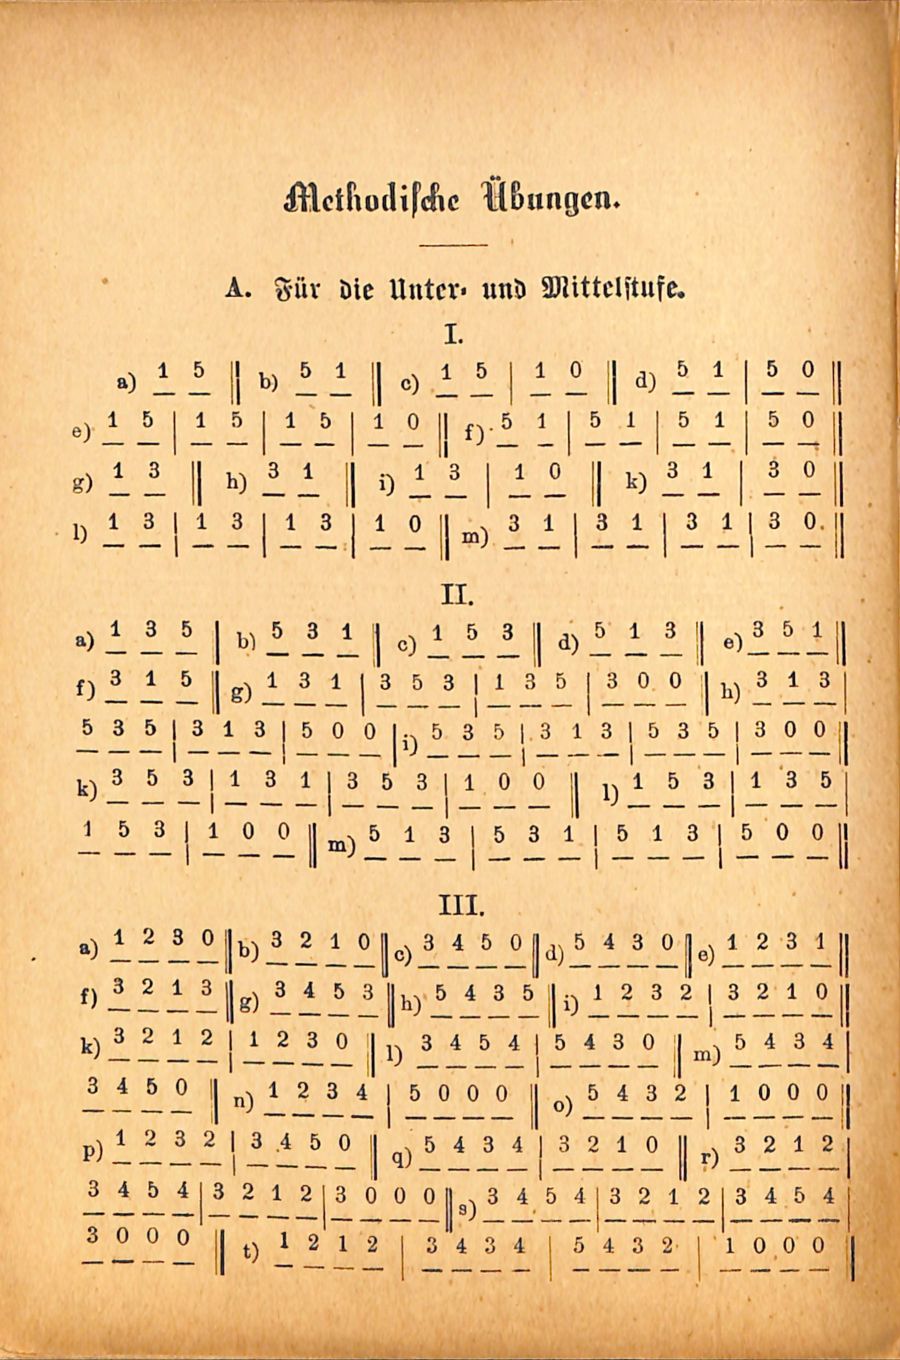 Methodische Übungen.
A. Für die Unter- und Mittelstufe.
I.
a) 1 5 || b) 5 1 || c) 1 5 | 1 0 || d) 5 1 | 5 0 ||
e) 1 5 | 1 5 | 1 5 | 1 0 || f) 5 1 | 5 1 | 5 1 | 5 0 ||
g) 1 3 || h) 3 1 || i) 1 3 | 1 0 || k) 3 1 | 3 0 ||
l) 1 3 | 1 3 | 1 3 | 1 0 || m) 3 1 | 3 1 | 3 1 | 3 0 ||
II.
a) 1 3 5 | b) 5 3 1 || c) 1 5 3 || d) 5 1 3 || e) 3 5 1 ||
f) 3 1 5 || g) 1 3 1 | 3 5 3 | 1 3 5 | 3 0 0 || h) 3 1 3 |
5 3 5 | 3 1 3 | 5 0 0 | i) 5 3 5 | 3 1 3 | 5 3 5 | 3 0 0 ||
k) 3 5 3 | 1 3 1 | 3 5 3 | 1 0 0 || l) 1 5 3 | 1 3 5 |
1 5 3 | 1 0 0 || m) 5 1 3 | 5 3 1 | 5 1 3 | 5 0 0 ||
III.
a) 1 2 3 0 || b) 3 2 1 0 || c) 3 4 5 0 || d) 5 4 3 0 || e) 1 2 3 1 ||
f) 3 2 1 3 || g) 3 4 5 3 || h) 5 4 3 5 || i) 1 2 3 2 | 3 2 1 0 ||
k) 3 2 1 2 | 1 2 3 0 || l) 3 4 5 4 | 5 4 3 0 || m) 5 4 3 4 |
3 4 5 0 || n) 1 2 3 4 | 5 0 0 0 || o) 5 4 3 2 | 1 0 0 0 ||
p) 1 2 3 2 | 3 4 5 0 || q) 5 4 3 4 | 3 2 1 0 || r) 3 2 1 2 |
3 4 5 4 | 3 2 1 2 | 3 0 0 0 || s) 3 4 5 4 | 3 2 1 2 | 3 4 5 4 |
3 0 0 0 || t) 1 2 1 2 | 3 4 3 4 | 5 4 3 2 | 1 0 0 0 ||